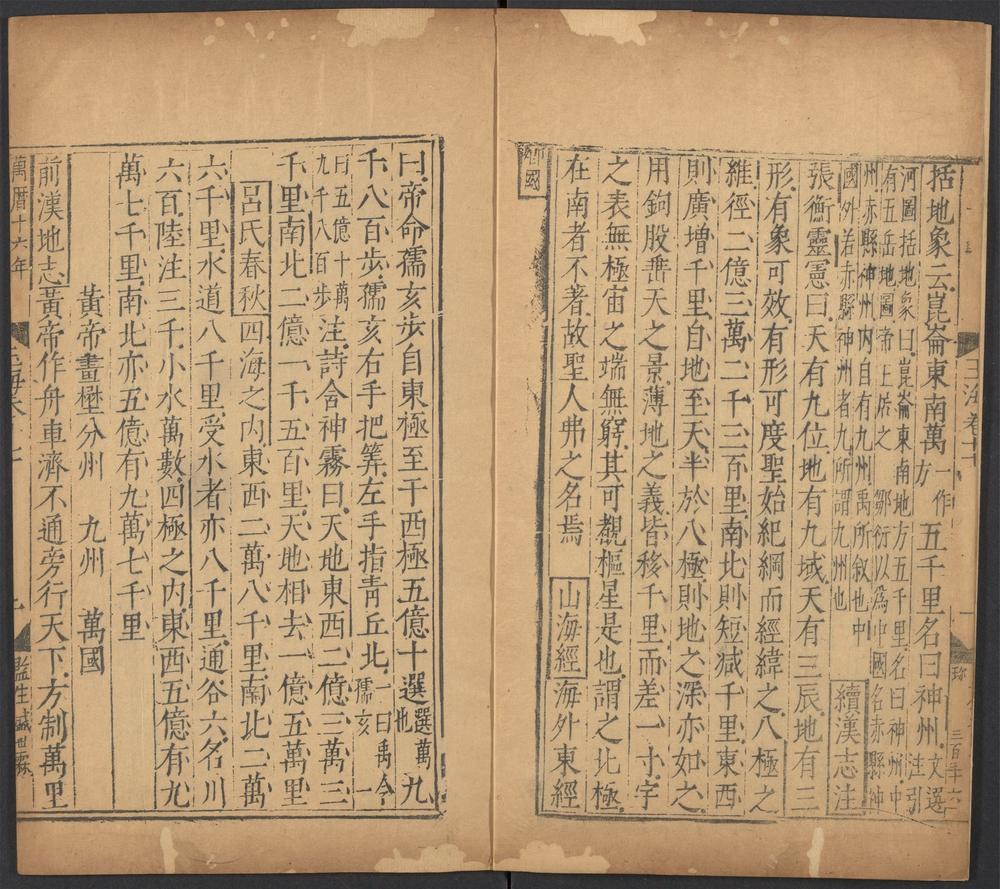 玉海卷十
括地象云崑崙東南萬一作方五千里名曰神州文選注引
河圖括地象曰崑崙東南地方五千里名曰神州中
有五岳地圖帝王居之 鄒衍以爲中國名赤縣神
州赤縣神州內自有九州禹所敘也中
國外若赤縣神州者九所謂九州也
續漢志注
張衡靈憲曰天有九位地有九域天有三辰地有三
形有象可效有形可度聖始紀綱而經緯之八極之
維徑二億三萬二千三百里南北則短減千里東西
則廣增千里自地至天半於八極則地之深亦如之
用鉤股重天之景薄地之義皆移千里而差一寸字
之表無極宙之端無窮其可觀樞星是也謂之北極
在南者不著故聖人弗之名焉 山海經海外東經
曰帝命孺亥步自東極至于西極五億十選選萬也九
千八百步孺亥右手把筭左手指青丘北一曰禹令孺亥一
曰五億十萬九千八百步注詩含神霧曰天地東西二億三萬三
千里南北二億一千五百里天地相去一億五萬里
呂氏春秋四海之內東西二萬八千里南北二萬
六千里水道八千里受水者亦八千里通谷六名川
六百陸注三千小水萬數四極之內東西五億有九
萬七千里南北亦五億有九萬七千里
黃帝畫壄分州 九州 萬國
前漢地志黃帝作舟車濟不通旁行天下方制萬里
萬曆十六年
監生